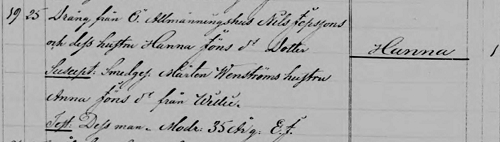 19 25 Dräng från Ö. Allmänningshus Nils Jepssons
och dess hustru Hanna Jöns dr Dotter Hanna 1
Suscept. Smedges. Mårten Wenströms hustru
Anna Jöns dr från
Test. Dess man. Modr. 35 årg. E. J.